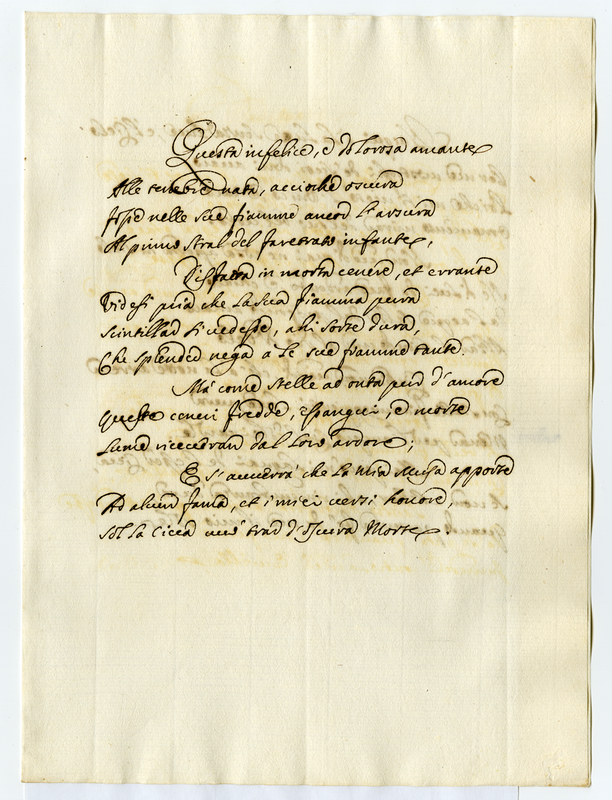 Questa infelice, e dolorosa amante
Alle tenebre nata, acciochè oscura
fosse nelle sue fiamme ancor l'arsura
Al primo stral del faretrato infante,
Disfatta in morta cenere, et errante
Videsi pria che la sua fiamma pura
scintillar si vedesse, ahi sorte dura,
Che splender nega a le sue fiamme tante.
Ma come stelle ad onta pur d'amore
queste ceneri fredde, e sangui, e morte
lume riceveran dal loro ardore;
E s'avverrà che la mia Musa apporte
Ad alcun fama, et i miei versi honore,
sol la cieca
trar d'oscura Morte.